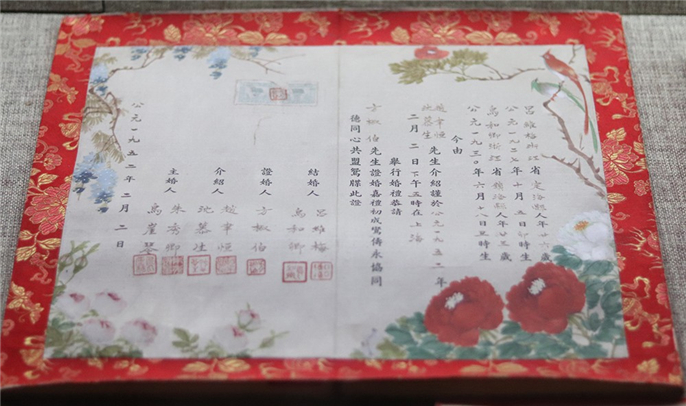 呂維梅浙江省定海縣人年廿六歲
公元一九二七年十月五日卯時生
烏和卿浙江省鎮海縣人年廿三歲
公元一九三〇年六月十八日時生
今由
趙聿恒
池慕生
先生介紹謹於公元一九五二年
二月二日下午五時在上海
舉行婚禮恭請
方椒伯先生證婚嘉禮初成鴛儔永協同
德同心共盟鴛牒此證
結婚人
呂維梅
烏和卿
證婚人
方椒伯
介紹人
趙聿恒
池慕生
主婚人
朱秀卿
烏崖琴
公元一九五二年二月二日